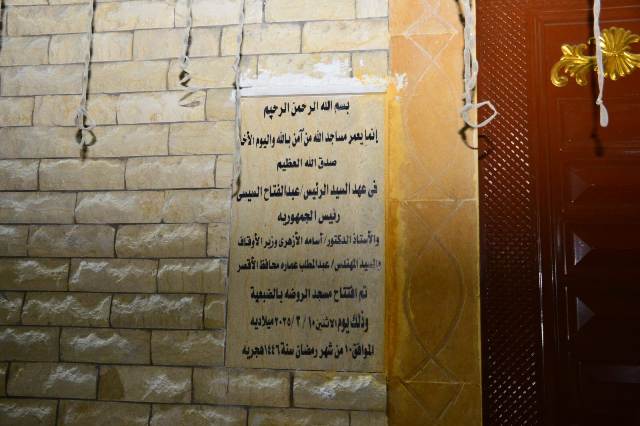 بسم الله الرحمن الرحيم
إنما يعمر مساجد الله من آمن بالله واليوم الأخر
صدق الله العظيم
فى عهد السيد الرئيس/ عبدالفتاح السيسى
رئيس الجمهوريه
والأستاذ الدكتور/ أسامه الأزهرى وزير الأوقاف
والسيد المهندس/ عبدالمطلب عماره محافظ الأقصر
تم افتتاح مسجد الروضه بالضبعية
وذلك يوم الاثنين ١٠ / ٣ / ٢٠٢٥ ميلاديه
الموافق ١٠ من شهر رمضان سنة ١٤٤٦ هجريه